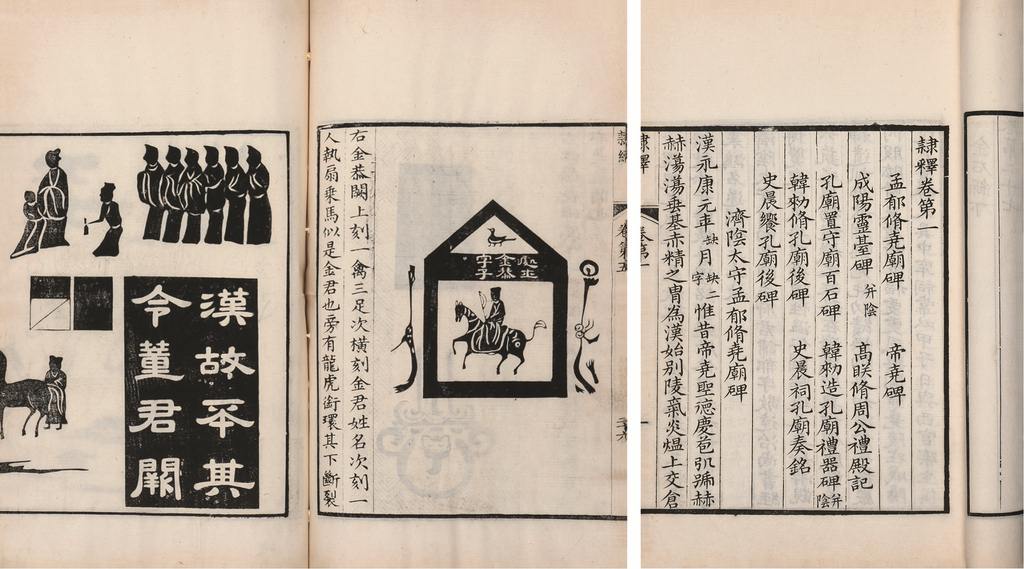 隸釋卷第一
孟郁脩堯廟碑　帝堯碑
成陽靈臺碑 并陰　高朕脩周公禮殿記
孔廟置守廟百石碑　韓勑造孔廟禮器碑 并陰
韓勑脩孔廟後碑　史晨祠孔廟奏銘
史晨饗孔廟後碑
濟陰太守孟郁脩堯廟碑
漢永康元年 缺 月 缺二字 惟昔帝堯聖德慶苞弘號赫
赫蕩蕩垂基赤精之胄為漢始別陵氣炎熅上交倉
隸釋
卷第一
隸續
卷第五
處士
金恭
字子
右金恭闕上刻一禽三足次橫刻金君姓名次刻一
人執扇乘馬似是金君也旁有龍虎銜環其下斷裂
漢故不其
令董君闕